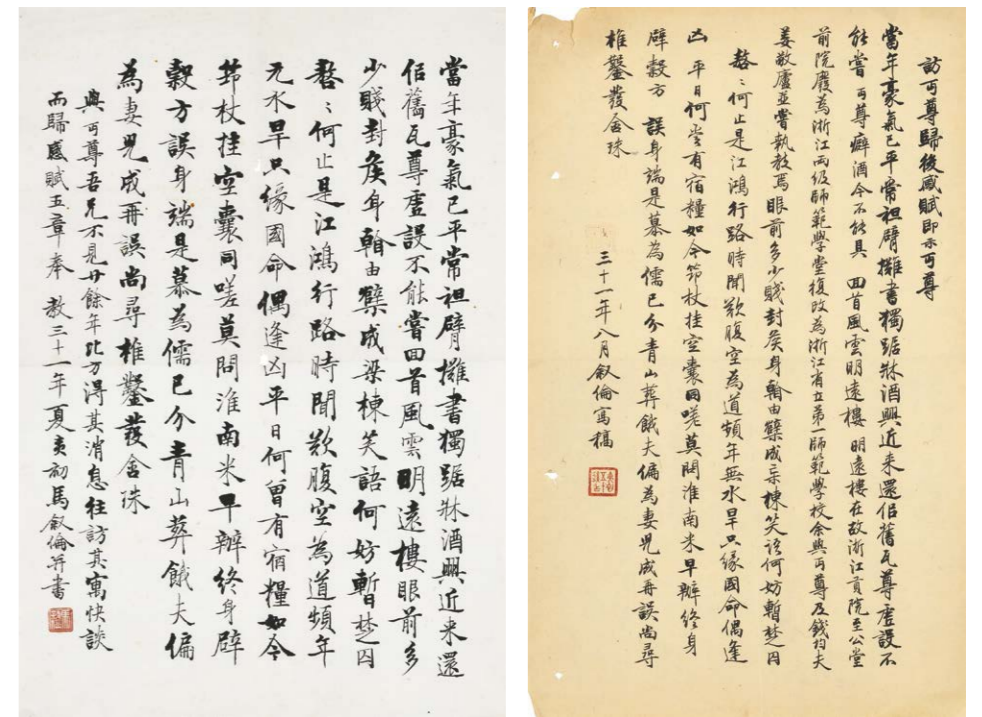 當年豪氣已平常袒臂攤書獨踞牀酒興近來還
佀舊瓦尊虛設不能嘗回首風雲明遠樓眼前多
少賤封矦身輪由櫱成梁棟笑語何妨暫楚囚
嗸〻何止是江鴻行路時聞歎腹空為道頻年
无水旱只緣國命偶逢凶平日何曾有宿糧如今
笻杖挂空囊同嗟莫問淮南米早辦終身辟
榖方誤身端是慕為儒已分青山葬餓夫偏
為妻兒成再誤尚尋椎鑿發含珠
與丏尊吾兄不見廿餘年比方得其消息往訪其寓快談
而歸感賦五章奉 教三十一年夏夷初馬敘倫并書
訪丏尊歸後感賦即示丏尊
當年豪氣已平常袒臂攤書獨踞牀酒興近來還佀舊瓦尊虛設不
能嘗 丏尊癖酒今不能具 回首風雲明遠樓 明遠樓在故浙江貢院至公堂
前院廢為浙江兩级師範學堂復改為浙江省立第一師範學校余與丏尊及錢均夫
姜敬廬並嘗執教焉眼前多少賤封矦身輪由櫱成梁棟笑語何妨暫楚囚
嗸〻何止是江鴻行路時聞歎腹空為道頻年無水旱只緣國命偶逢
凶 平日何嘗有宿糧如今笻杖挂空囊同嗟莫問淮南米早辦終身
辟榖方 誤身端是慕為儒已分青山葬餓夫偏為妻兒成再誤尚尋
椎鑿發含珠
三十一年八月敘倫寫稿